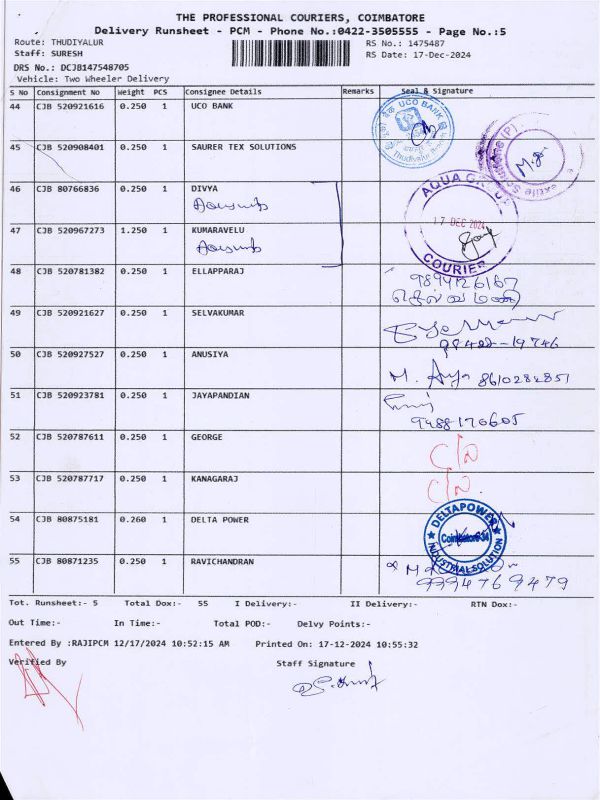 THE PROFESSIONAL COURIERS, COIMBATORE
Delivery Runsheet - PCM - Phone No.:0422-3505555 - Page No.:5
Route: THUDIYALUR
RS No.: 1475487
Staff: SURESH
RS Date: 17-Dec-2024
DRS No.: DCJB147548705
Vehicle: Two Wheeler Delivery
S No Consignment No Weight PCS Consignee Details Remarks Seal & Signature
44 CJB 520921616 0.250 1 UCO BANK
UCO BANK
Thudiyalur
45 CJB 520908401 0.250 1 SAURER TEX SOLUTIONS
46 CJB 80766836 0.250 1 DIVYA
AQUA
47 CJB 520967273 1.250 1 KUMARAVELU
17 DEC 2024
COURIER
48 CJB 520781382 0.250 1 ELLAPPARAJ
9894126167
49 CJB 520921627 0.250 1 SELVAKUMAR
50 CJB 520927527 0.250 1 ANUSIYA
M. 8610282851
51 CJB 520923781 0.250 1 JAYAPANDIAN
9488170605
52 CJB 520787611 0.250 1 GEORGE
53 CJB 520787717 0.250 1 KANAGARAJ
54 CJB 80875181 0.260 1 DELTA POWER
DELTAPOWER
INDUSTRIAL SOLUTION
55 CJB 80871235 0.250 1 RAVICHANDRAN
9994769479
Tot. Runsheet:- 5 Total Dox:- 55 I Delivery:- II Delivery:- RTN Dox:-
Out Time:- In Time:- Total POD:- Delvy Points:-
Entered By :RAJIPCM 12/17/2024 10:52:15 AM Printed On: 17-12-2024 10:55:32
Verified By Staff Signature